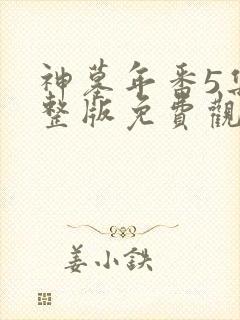 神墓年番5集
整版免費觀
姜小鉄